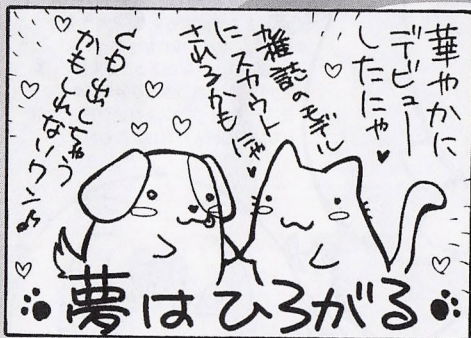 華やかに
デビュー
したにゃ♥
雑誌のモデル
にスカウト
されるかもにゃ♥
出しちゃう
かもしれないワン♪
夢はひろがる